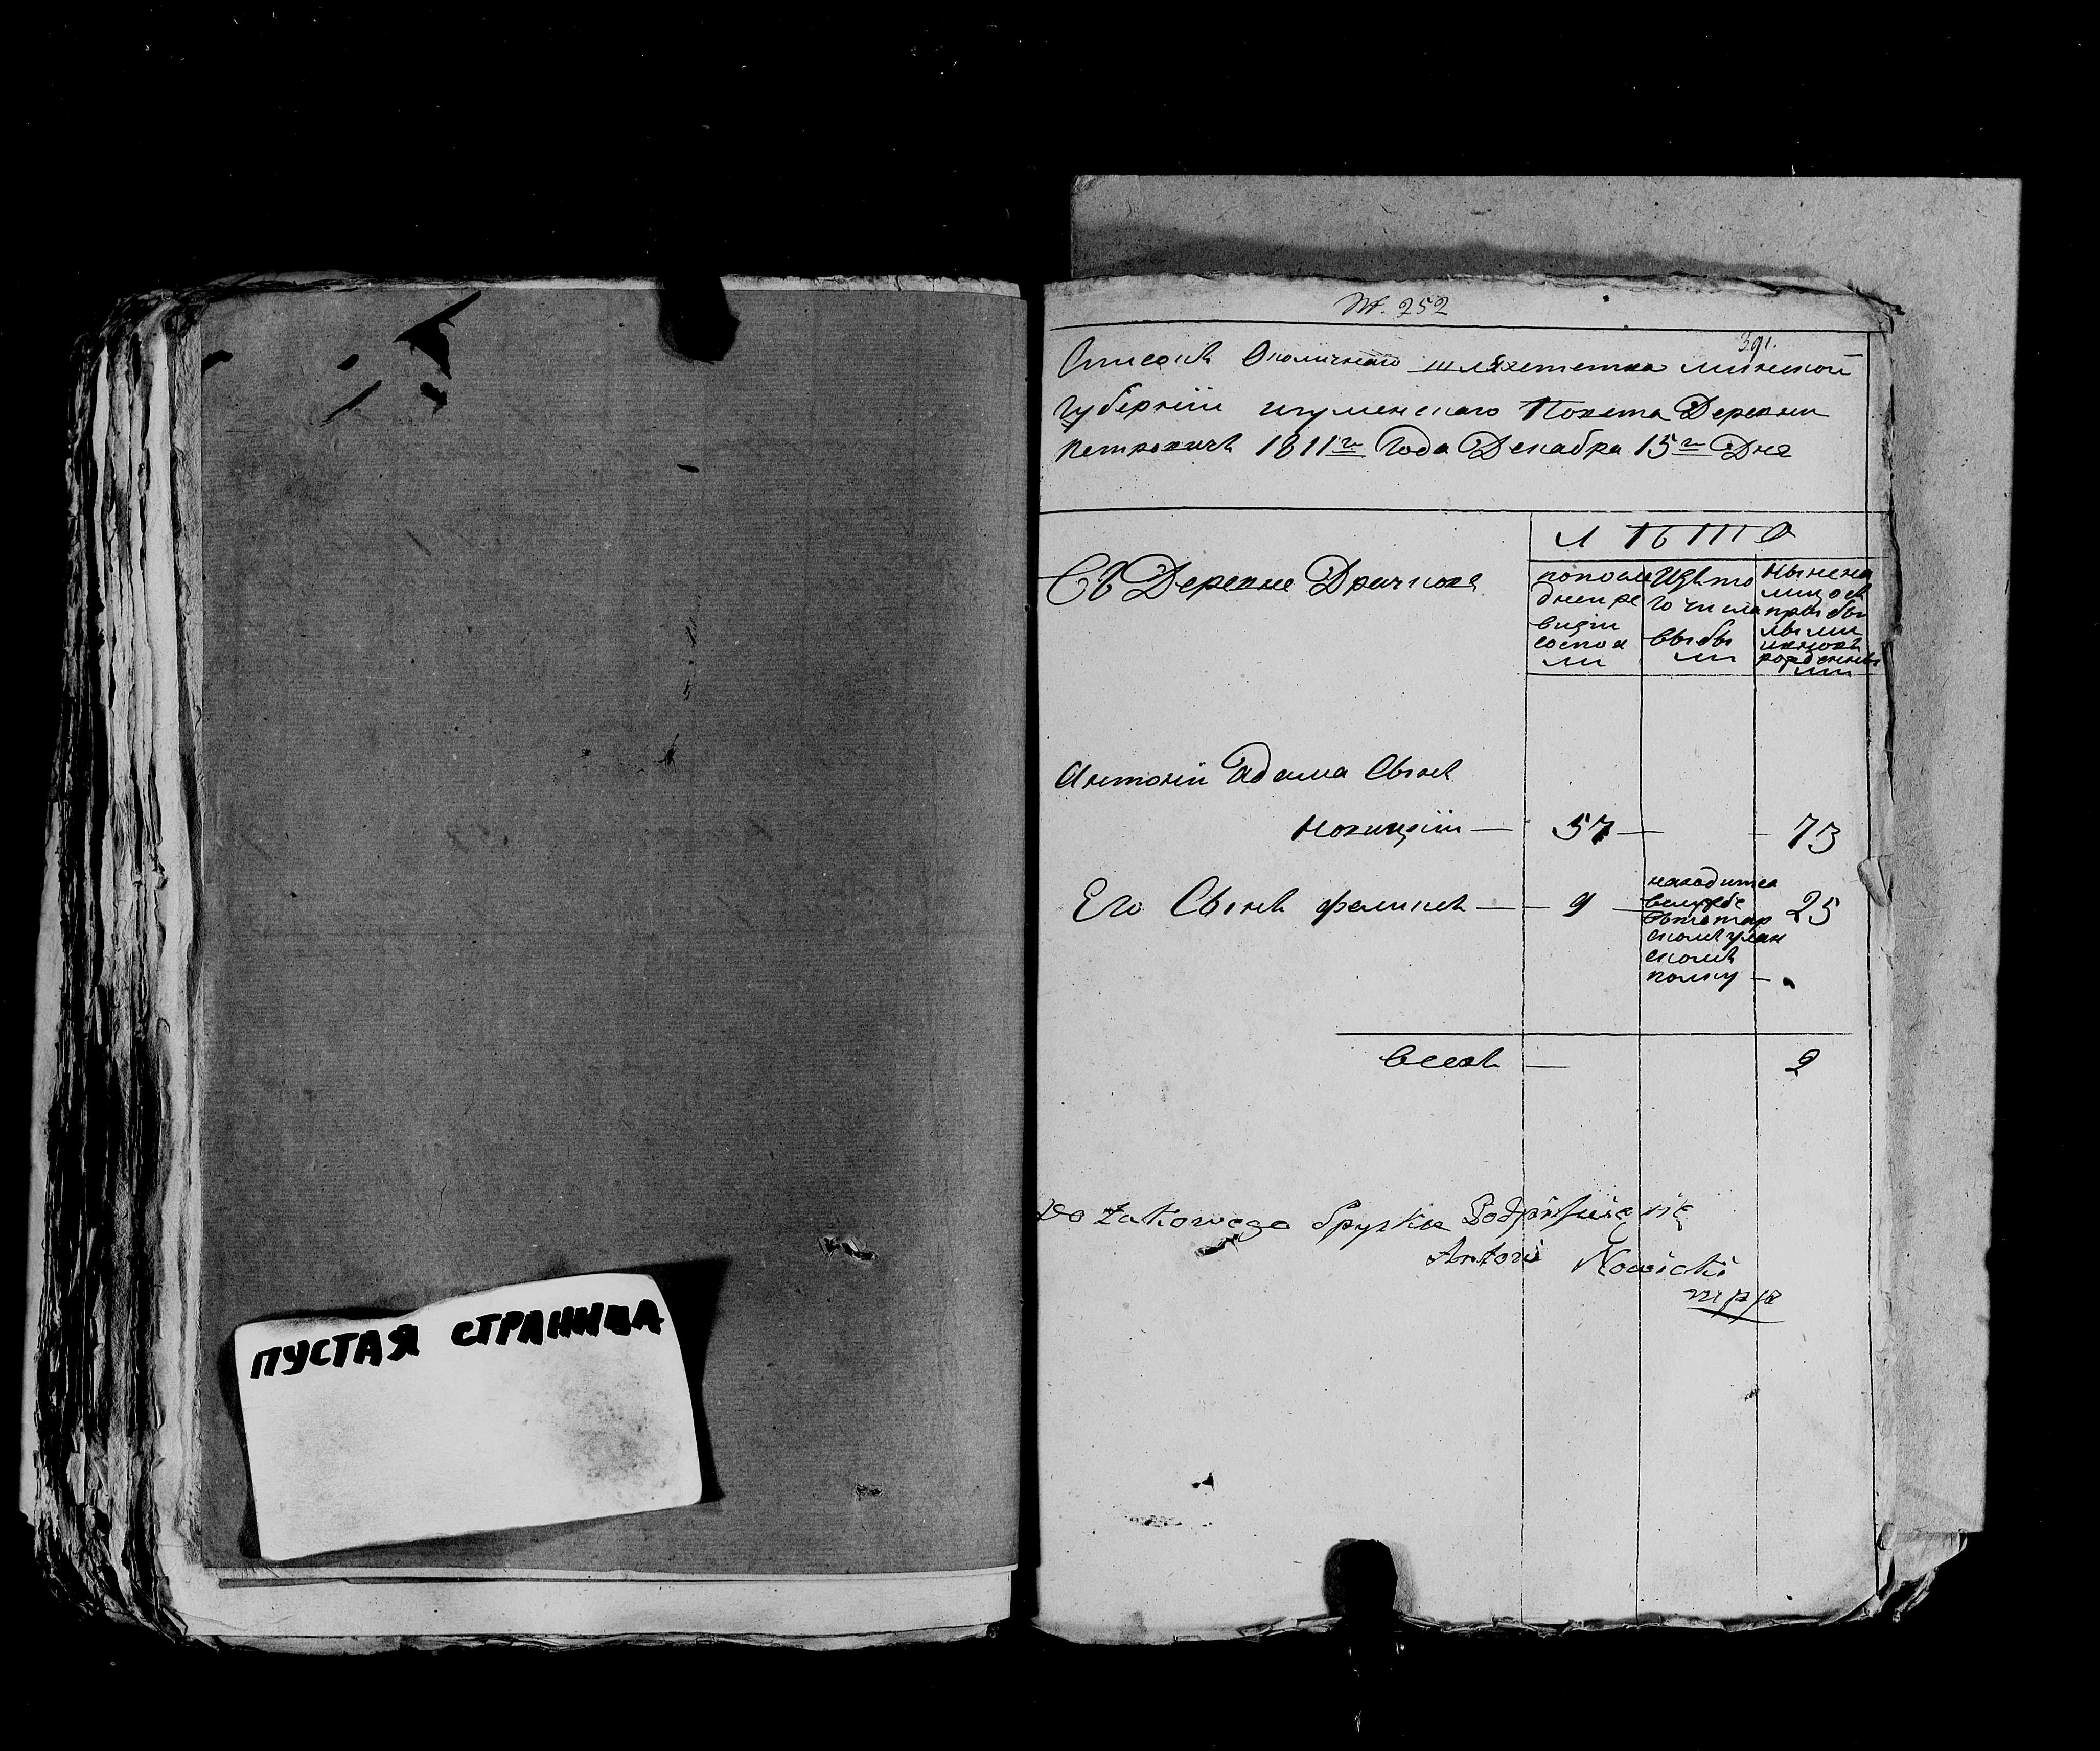 ПУСТАЯ СТРАНИЦА
№. 252
391.
Списокъ Околичнаго шляхетства минской
губернїи игуменскаго Повета Деревни
Петровичъ 1811го Года Декабра 15го Дня
Лѣта
Въ Деревне Драчкова
попосле
дней ре
визіи
состоя
ли
Изъ то
го числа
выбы
ли
Ныне на
лицо съ
прибы
лыми
и вновь
рожденны
ми
Антонiй Адама Сынъ
Новицкiй — 57 — — 73
Его Сынъ феликъ — 9 25
находится
вслужбе
вътатар
скомъ улан
скомъ
полку —
всехъ — 2
Do takowego spysku Podpisuię się
Antoni Nowicki
mpp